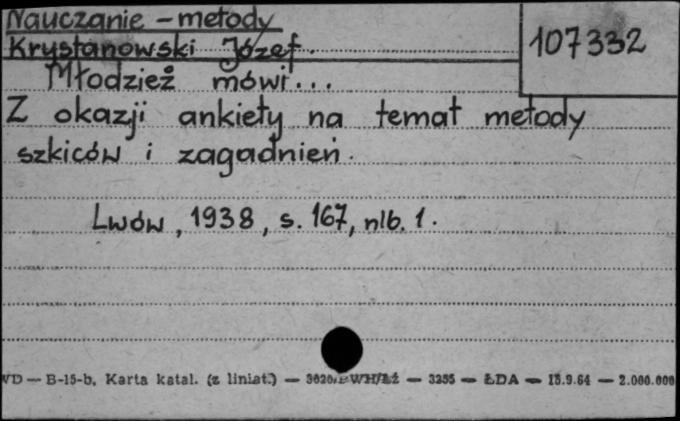 Nauczanie – metody
107332
Krystanowski Józef.
Młodzież mówi...
Z okazji ankiety na temat metody
szkiców i zagadnień.
Lwów, 1938, s. 167, nlb. 1.
WD — B-15-b, Karta katal. (z liniat.) — — 3255 — ŁDA — 15.9.64 — 2.000.000